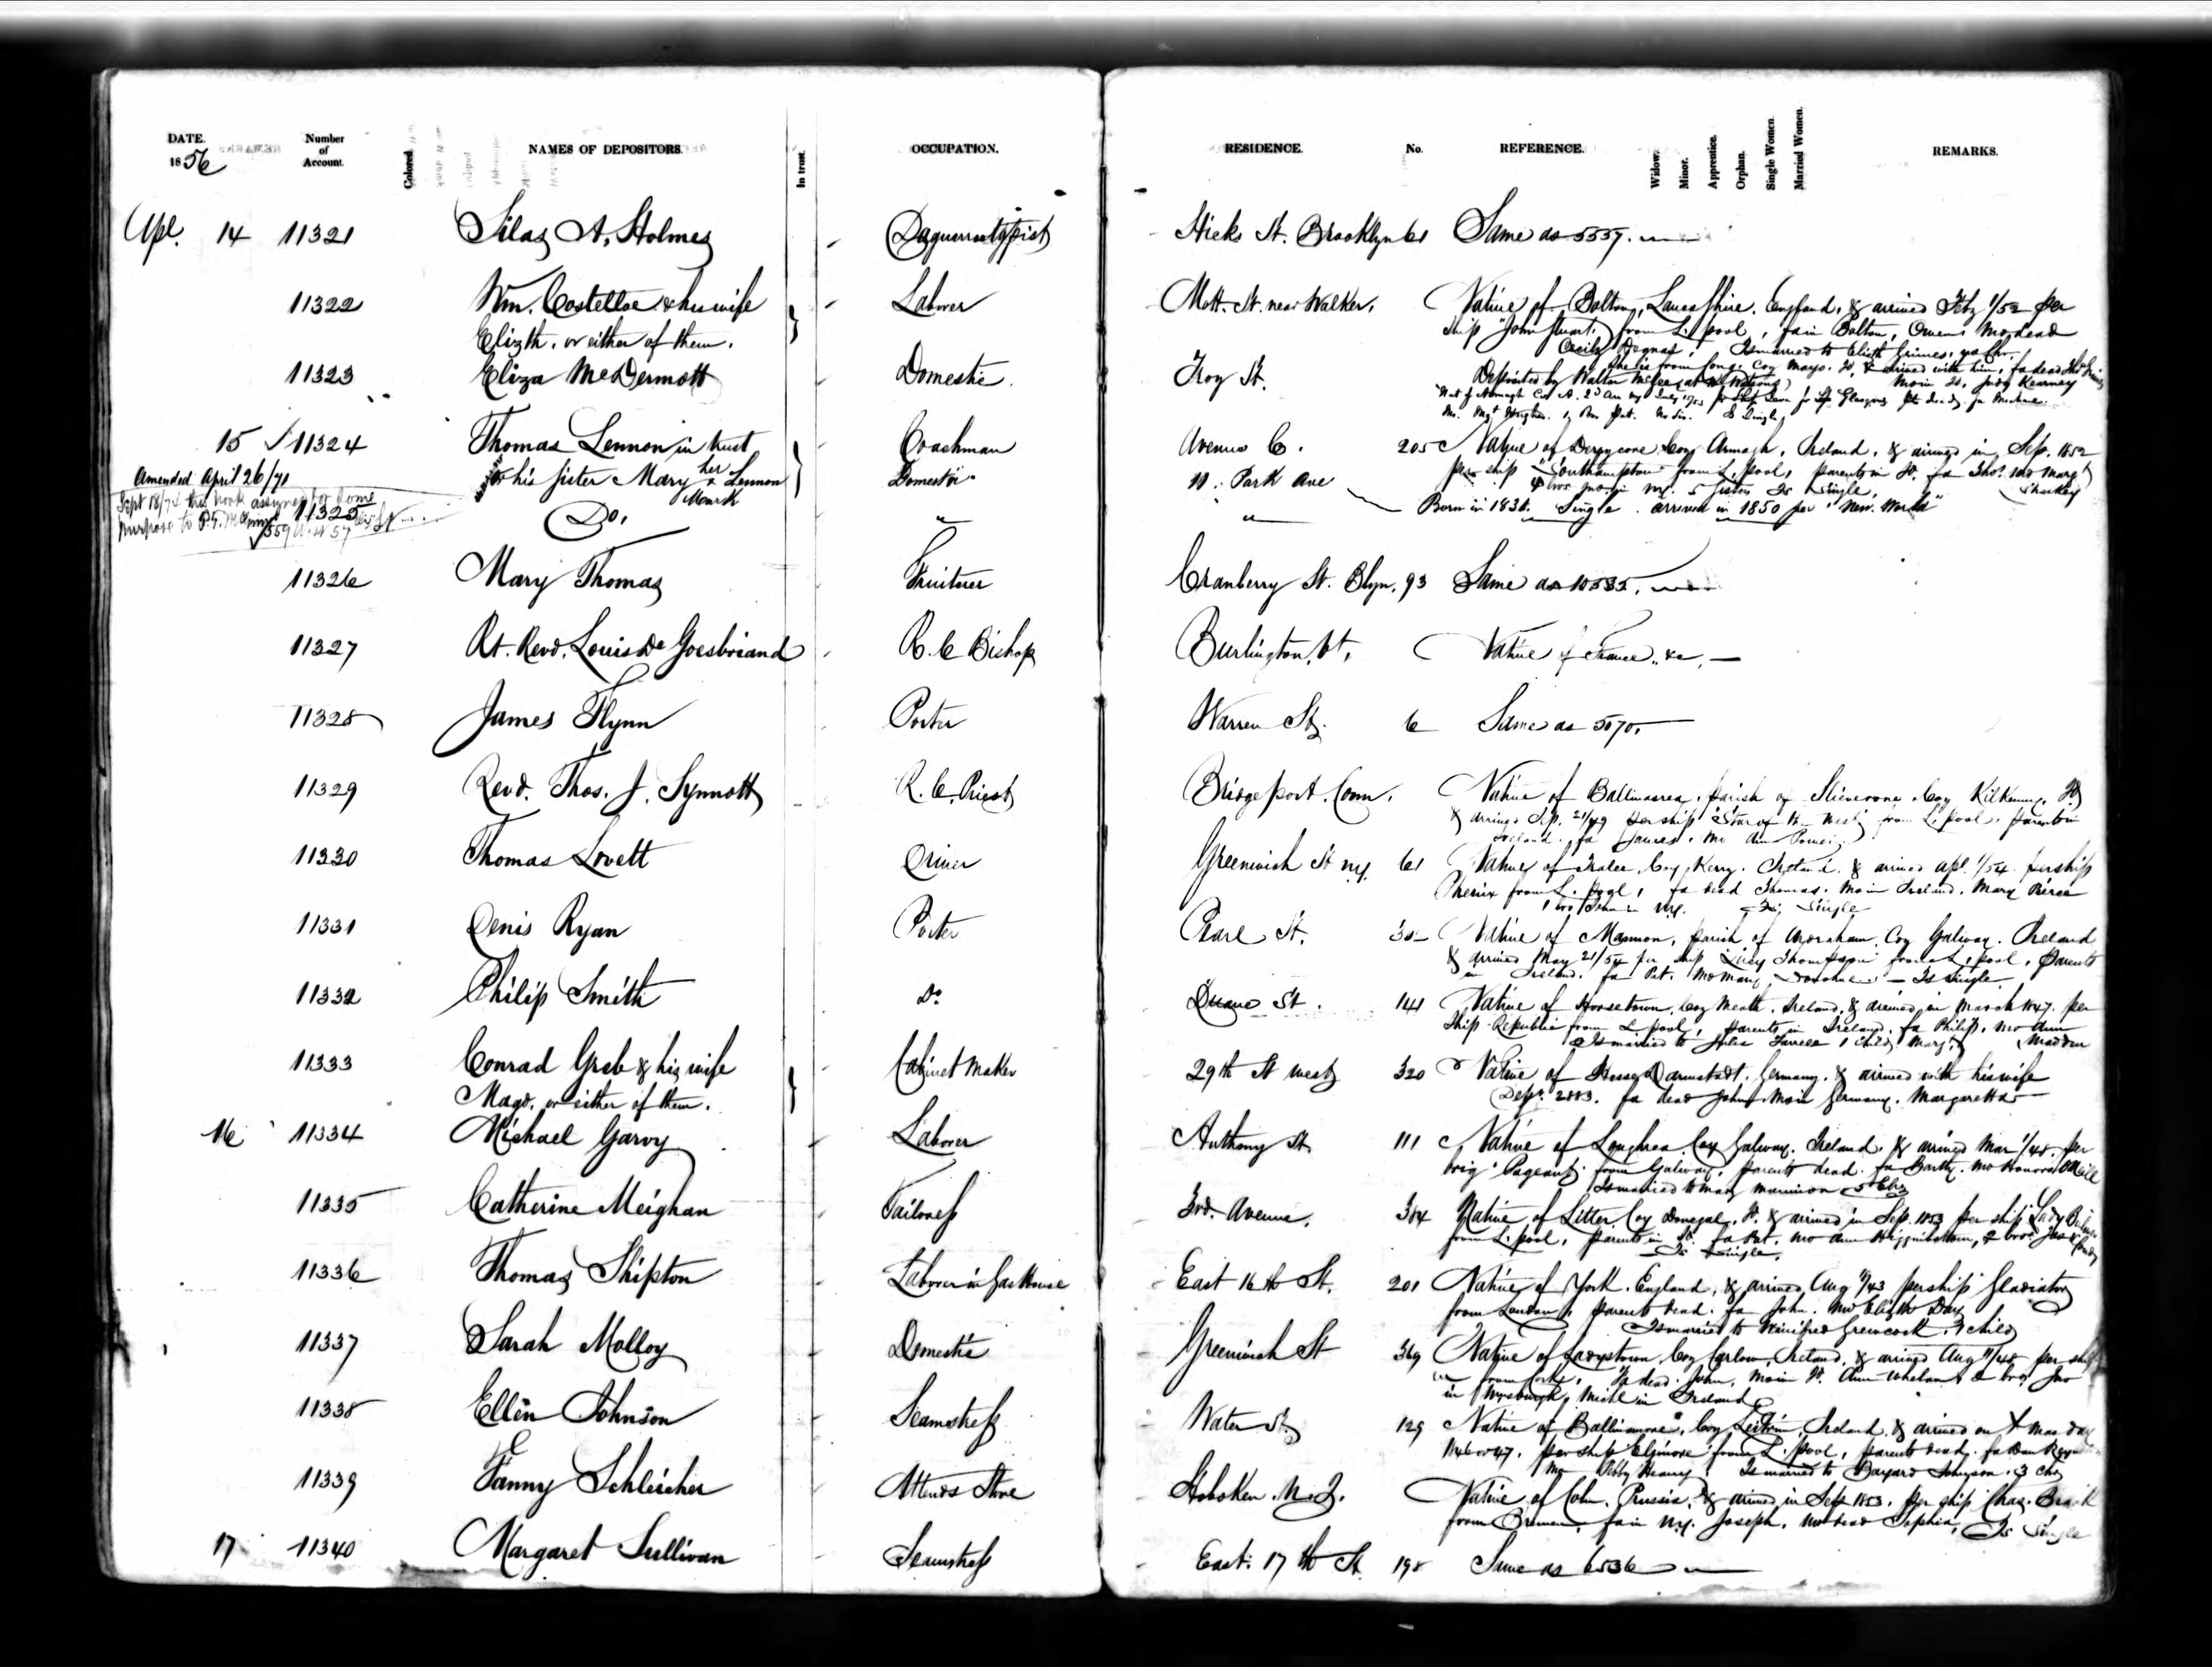 DATE.
1856
Number of Account.
Colored.
NAMES OF DEPOSITORS.
In trust.
OCCUPATION.
RESIDENCE.
No.
REFERENCE.
Widow.
Minor.
Apprentice.
Orphan.
Single Women.
Married Women.
REMARKS.
Apl. 14 11321 Silas A. Holmes Daguerreotypist Hicks St. Brooklyn 61 Same as 5559.
11322 Wm. Costelloe & his wife Laborer Mott St. near Walker. Native of Bolton, Lancashire. England, & arrived Feby 1/52 per
Elizth. or either of them. ship "John Stuart" from L.pool, fa in Bolton, Owen. Mo dead
Cecily Degnan, Is married to Elizth Grimes, no chn.
11323 Eliza McDermott Domestic Troy St. Deposited by Walter McGee
She is from Cong. Coy Mayo. Id, & arrived with him, fa dead
Mo in Id, Judy Kearney
15 11324 Thomas Lennon in trust Coachman Avenue C. 205 Native of Derrycone, Coy Armagh, Ireland, & arrived in Sep. 1852
for his sister Mary her x mark Lennon Domestic 11 Park Ave per ship "Southampton" from L.pool, parents in Id. fa Thos. mo Margt Sharkey
Is Single.
Amended April 26/71
Sept 18/74 this book assigned for some
purpose to P.G. 559 West 57
11325 Do. " " Born in 1836. Single. arrived in 1850 per "New World"
11326 Mary Thomas Fruiterer Cranberry St. Blyn. 93 Same as 10535.
11327 Rt. Revd. Louis De Goesbriand R.C Bishop Burlington, Vt. Native of France, &c.
11328 James Flynn Porter Warren St. 6 Same as 5070.
11329 Revd. Thos. J. Synnott R.C. Priest Bridgeport. Conn. Native of Ballinacrea, parish of Slieverone, Coy Kilkenny. Id
& arrived Sep. 21/49 per ship "Star of the West" from L.pool. parents in
Ireland. fa James. Mo Ann Power.
11330 Thomas Lovett Driver Greenwich St N.Y. 61 Native of Tralee, Coy Kerry. Ireland. & arrived Apl. 1/54 per ship
Phenix from L.pool, fa dead Thomas. Mo in Ireland. Mary Pierce
1 bro John in N.Y. Is Single
11331 Denis Ryan Porter Pearl St. Native of Mannon, parish of Coy Galway. Ireland
& arrived May 21/54 per ship Lucy Thompson from L.pool, parents
in Ireland. fa Pat. Mo Mary Donohue — Is Single
11332 Philip Smith Do Duane St. 141 Native of Horsetown, Coy Meath, Ireland, & arrived in March 1847. per
ship Republic from L.pool, parents in Ireland, fa Philip, Mo Ann Madden
Is married to Julia Farrell 1 child Margt
11333 Conrad Grab & his wife Cabinet Maker 29th St west 320 Native of Hesse Darmstadt, Germany, & arrived with his wife
Magd. or either of them. Depr. 2883. fa dead John, Mo in Germany. Margaretha
16 11334 Michael Garvy Laborer Anthony St. 111 Native of Loughrea Coy Galway. Ireland. & arrived Mar 1/48. per
brig "Pageant" from Galway, parents dead. fa Barthy. Mo Honora
Is married to Mary Mannion 5 Chn
11335 Catherine Meighan Tailoress 3rd. Avenue. 384 Native of Litter, Coy Donegal, Id. & arrived in Sep. 1853 per ship Lady
from L.pool, parents in Id. fa Pat. Mo Ann Higginbotham, 2 bros Jas &
Is Single.
11336 Thomas Shipton Laborer in Gas House East 16th St. 201 Native of York. England, & arrived Aug /43 per ship Gladiator
from London, parents dead. fa John. Mo Elizth Day
Is married to Winifred Greencock. 3 child
11337 Sarah Molloy Domestic Greenwich St 369 Native of Ladystown, Coy Carlow, Ireland, & arrived Aug 11/48 per ship
from Cork, fa dead John, Mo in Id. Ann Whelan, 2 bro. Jno
in Michl in Ireland
11338 Ellen Johnson Seamstress Water St. 129 Native of Ballinamore, Coy Leitrim, Ireland, & arrived on X mas day
1846 or 47. per ship Elsinore from L.pool, parents dead. fa Dan
Mo Heany. Is married to Bayard Johnson. 3 Chn
11339 Fanny Schleicher Attends Store Hoboken. N.J. Native of Coln. Prussia, & arrived in Sep 1853. per ship Chas.
from Bremen, fa in N.Y. Joseph. Mo dead Sophia, Is Single
17 11340 Margaret Sullivan Seamstress East 17th St. 198 Same as 6536